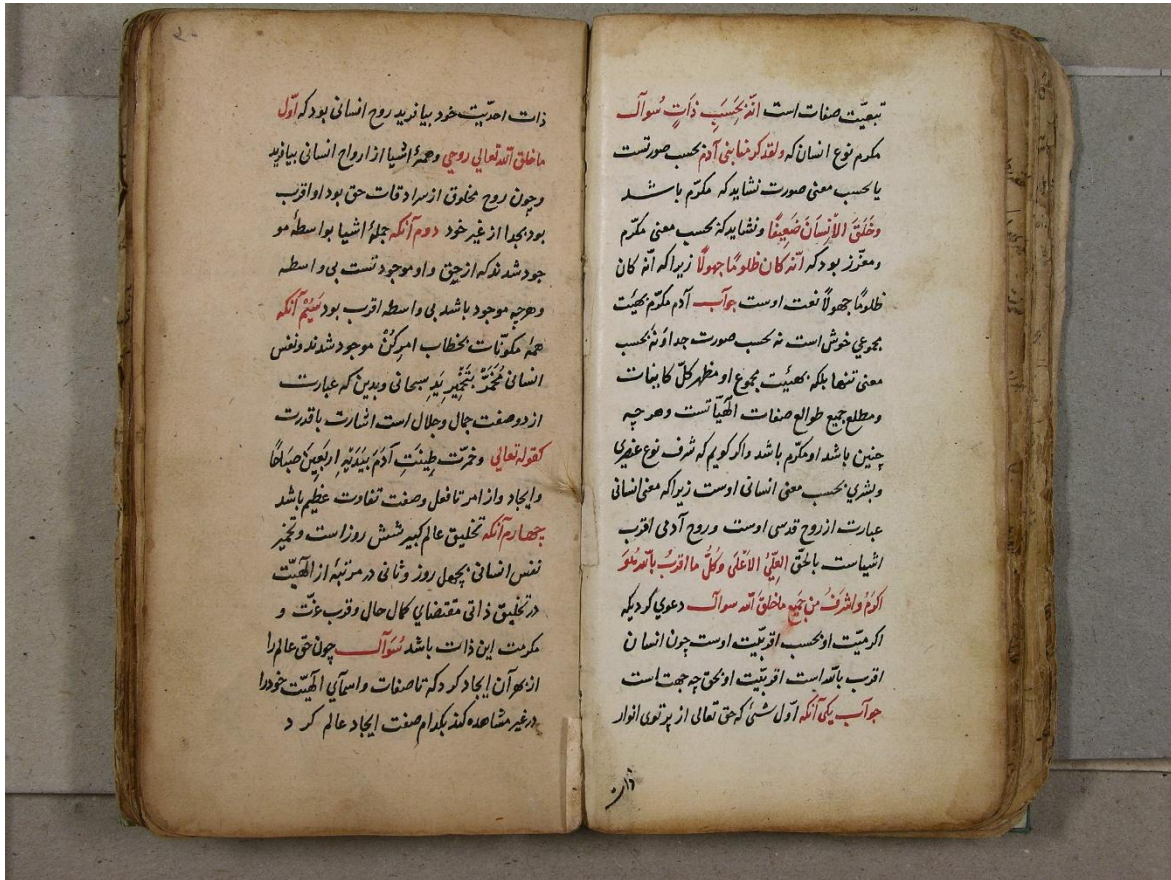 تبعیّت صفات است انّه بحَسَبِ ذَاتٍ سُوآل
مکرم نوع انسان که ولقد کرمنا بنی آدم بحسب صورتست
یا بحسب معنی صورت نشاید که مکرّم باشد
وخَلَقَ الاْنْسانَ ضَعِیفًا ونشاید که بحسب معنی مکرّم
ومعزّز بود که انّه کان ظلومًا جهولًا زیراکه انّه کان
ظلومًا جهولًا نعت اوست جوآب آدم مکرّم بهیئت
مجموعی خوش است نه بحسب صورت جدا ونه بحسب
معنی تنها بلکه بهیئت مجموع او مظهر کلّ کاینات
ومطلع جمیع طوالع صفات الٓهیّاتست وهر چه
چنین باشد او مکرّم باشد واکر کویم که شرف نوع عنصری
وبشری بحسب معنی انسانی اوست زیراکه معنی انسانی
عبارت از روح قدسی اوست وروح آدمی اقرب
اشیاست بالحقّ العِلّیِ الاَعْلَی وَکُلُّ ما اقربُ باللّه هُوَ
اکرَمُ واَشرَفُ مِن جَمیعِ ماخلقَ اللّه سوآل دعوی کردیکه
اکرمیّت او بحسب اقربیّت اوست چون انسان
اقرب باللّه است اقربیّت او بحق چه جهت است
جوآب یکی آنکه اوّل شئ که حق تعالی از پرتوی انوار
ذات
۲۰
ذات احدیّت خود بیافرید روح انسانی بود که اَوّل
ماخلق اللّه تعالی روحی وهمهٔ اشیا از ارواح انسانی بیافرید
وچون روح مخلوق از سرادقات حق بود او اقرب
بود بخدا از غیر خود دوم آنکه جملهٔ اشیا بواسطهٔ مو
جود شدند که از حق واو موجود تست بی واسطه
وهرچه موجود باشد بی واسطه اقرب بود سَیُّمْ آنکه
همهٔ مکوّنات بخطاب امر کُنْ موجود شدند ونفس
انسانی مُخَمَّرٌ بتَخْمِیرِ یَدِ سبحانی وبدین که عبارت
از دو صفت جمال وجلال است اشارت باقدرت
کقوله تعالی وخمرّت طِینَتِ آدَمَ بَیَدَیَّه اربَعِینَ صَباحًا
وایجاد واز امر تا فعل وصفت تفاوت عظیم باشد
چهارم آنکه تخلیق عالم کبیر شش روز است وتخمیر
نفس انسانی بچهل روز وثانی در مرتبهٔ از الٓهیّت
در تخلیق ذاتی مقتضای کمال حال وقرب عزّت و
مکرمت این ذات باشد سُوَآل چون حق عالم را
از بهر آن ایجاد کرد که تا صفات واسمآی الٓهیّت خودرا
در غیر مشاهده کند بکدام صفت ایجاد عالم کرد